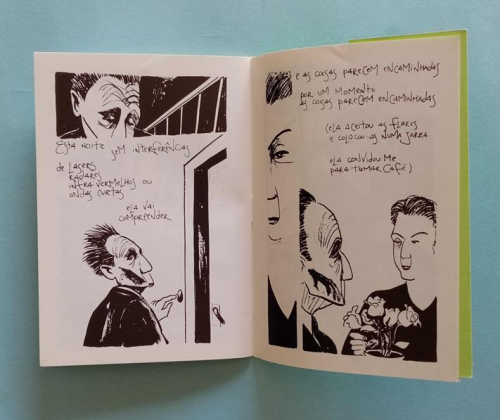 ESTA NOITE SEM INTERFERÊNCIAS
DE LASERS
RADARES
INFRA-VERMELHOS OU
ONDAS CURTAS
ELA VAI
COMPREENDER
E AS COISAS PARECEM ENCAMINHADAS
POR UM MOMENTO
AS COISAS PARECEM ENCAMINHADAS
(ELA ACEITOU AS FLORES
E COLOCOU-AS NUMA JARRA
ELA CONVIDOU-ME
PARA TOMAR CAFÉ)